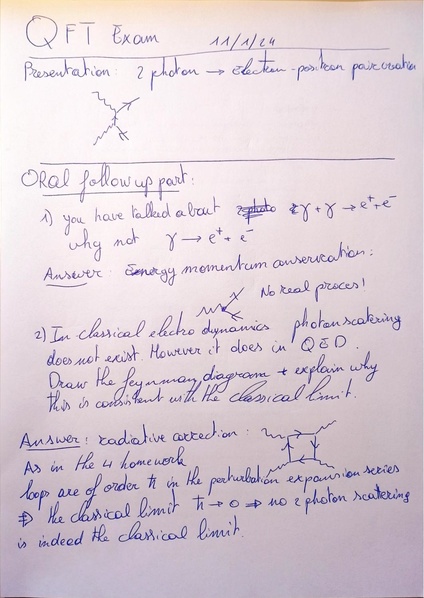 QFT Exam 11/1/24
Presentation: 2 photon → electron-positron pair creation
Oral follow up part:
1) you have talked about γ + γ → e⁺ + e⁻
why not γ → e⁺ + e⁻
Answer: Energy momentum conservation:
No real proces!
2) In classical electro dynamics photon scatering
does not exist. However it does in QED.
Draw the feynman diagrame + explain why
this is consistent with the classical limit.
Answer: radiative correction:
As in the 4 homework
loops are of order ħ in the perturbation expansion series
⇒ the classical limit ħ → 0 ⇒ no 2 photon scatering
is indeed the classical limit.